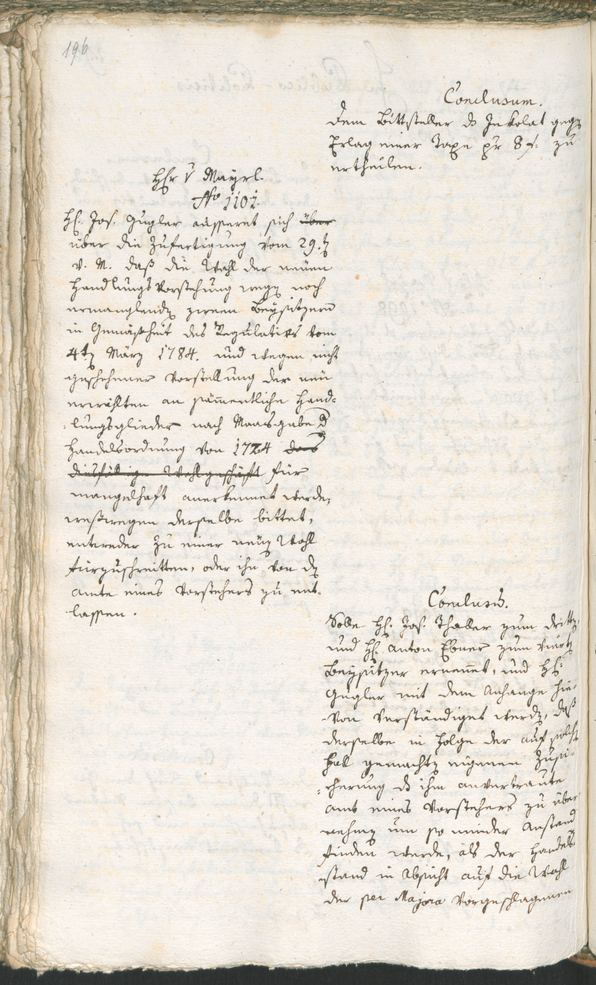 196
Conclusum.
dem Bittsteller ds Inkolat gegen
Erlag einer Taxe pr 8 f. zu
ertheilen.
Hfr v Mayrl.
No 1101.
Hr. Jos. Gugler aüsseret sich über
über die Zufertigung vom 29.
v. M. daß die Wahl der neüen
Handlungs Vorstehung wegen noch
ermanglenden zween Beysitzern
in Gemäßheit des Regulatifs vom
4ten März 1784. und wegen nicht
geschehener Vorstellung der neü
erwählten an sammentliche Hand-
lungsglieder nach Maasgabe d
Handelsordnung von 1724 das
diesfällige Wahlgeschäft für
mangelhaft anerkennet werde,
weßwegen derselbe bittet,
entweder zu einer neüen Wahl
fürzuschreitten, oder ihn von dem
Amte eines Vorstehers zu ent-
lassen.
Conclusum.
Solle Hr. Jos. Thaler zum dritten
und Hr. Anton Ebner zum vierten
Beysitzer ernennet, und Hr.
Gugler mit dem Anhange hie-
von verständiget werden, daß
derselbe in Folge der auf solchen
Fall gemachten eigenen Zusi-
cherung ds ihm anvertraute
Amt eines Vorstehers zu über
nehmen um so minder Anstand
finden werde, als der Handels
stand in Absicht auf die Wahl
der per Majora vorgeschlagenen